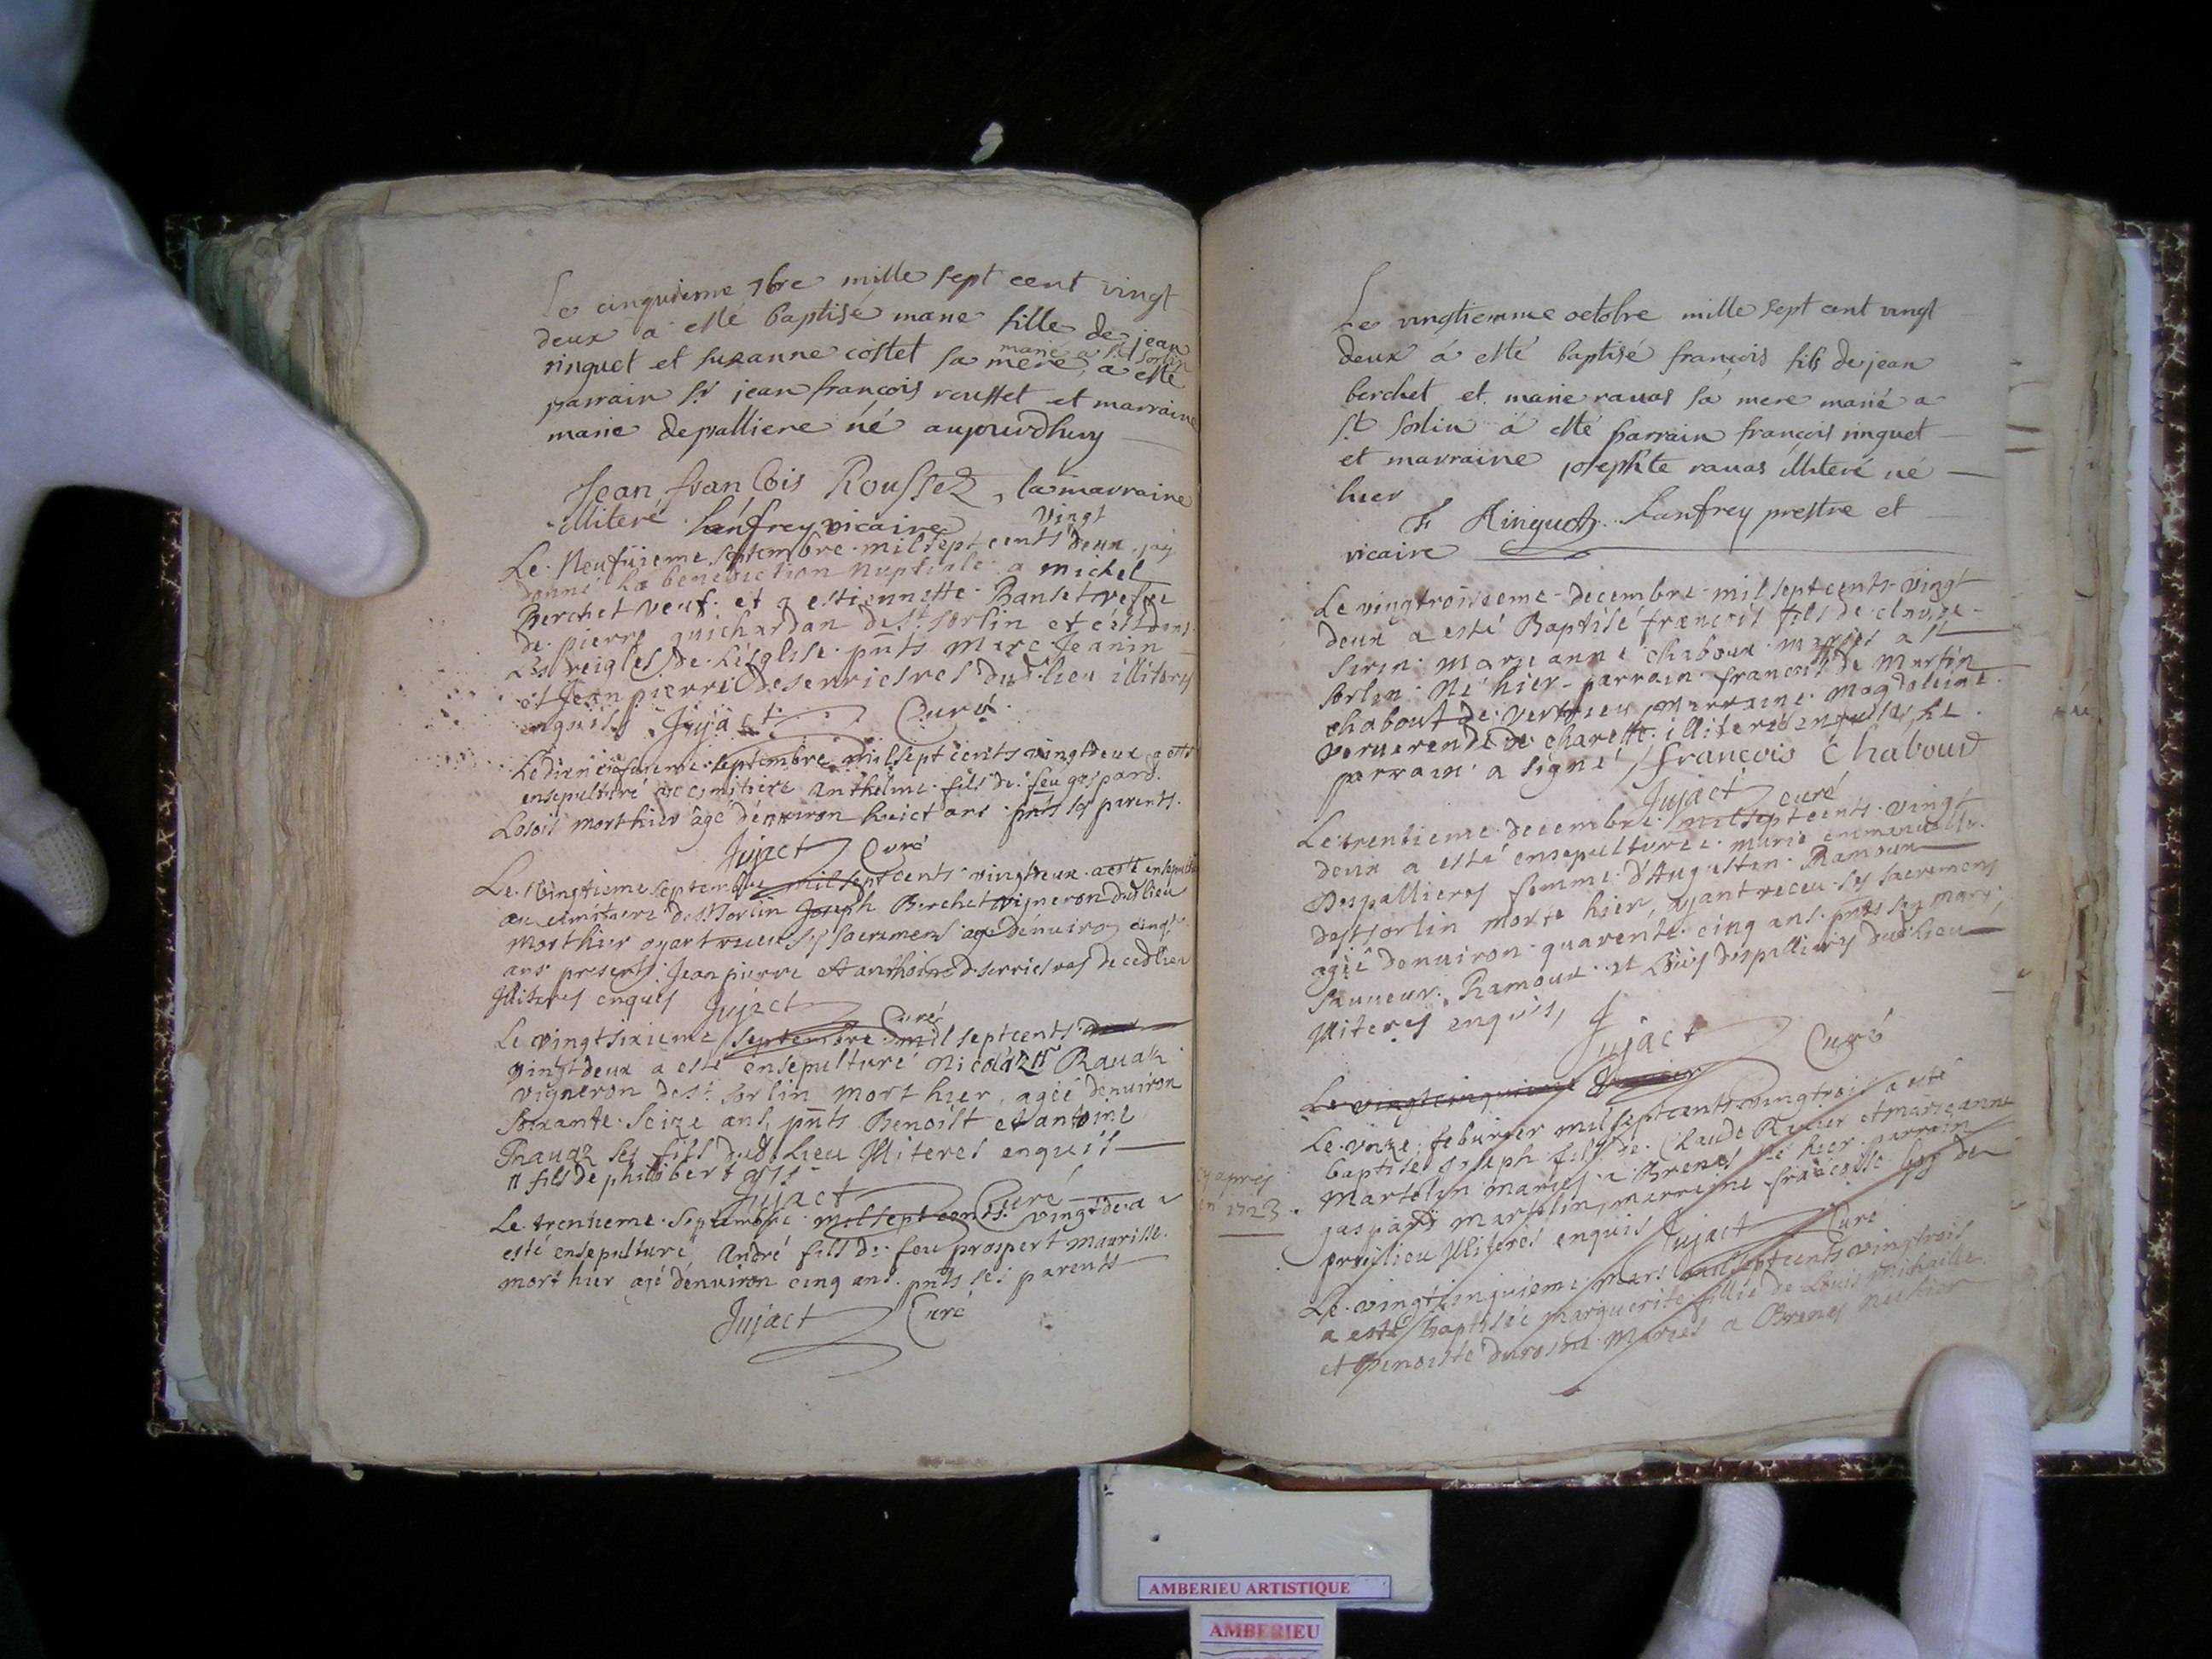 Le cinquieme 7bre mille sept cent vingt
deux a esté baptisé marie fille de jean
ringuet et suzanne costet sa mere marié a st sorlin, a esté
parrain sr jean françois roustet et marraine
marie depalliere né aujourdhuy
Jean franCois Roussez, la marraine
illiteré Lanfrey vicaire
Le Neufuieme septembre mil sept cents vingt deux jay
donné La benediction Nuptiale a michel
Berchet veuf et a estiennette Banset vefue
de pierre guichardan de St sorlin et ce
Les reigles de L'esglise pnts marc Jeanin
et Jean pierre deserriesres dud lieu illiterés
enquis Jujact Curé
Le dixneufuieme septembre mil sept cents vingtdeux a esté
ensepulturé au cimitiere Anthelme fils de feu gaspard
Losois mort hier âgé denuiron huict ans pnts ses parents.
Jujact Curé
Le Vingtieme septembre mil sept cents vingtdeux a esté
au cimitiere de St sorlin Joseph Berchet vigneron dud lieu
mort hier ayant receu ses sacremens agé denuiron cinqte
ans presents Jean pierre et anthoine deserriesres de ced lieu
Illiterés enquis Jujact Curé
Le vingtsixieme septembre mil sept cents
vingtdeux a esté ensepulturé Nicolaz # Rauaz
vigneron de st sorlin mort hier, agé denuiron
soixante seize ans, pnts Benoist et antoine
Rauaz ses fils dud lieu Illiterés enquis
# fils de philibert
Jujact Curé
Le trentieme septembre mil sept cents vingtde a
esté ensepulturé André fils de feu prospert maurille
mort hier agé denuiron cinq ans pnts ses parents
Jujact Curé
Le vingtiemme octobre mille sept cent vingt
deux á esté baptisé françois fils de jean
berchet et marie rauas sa mere marié a
st sorlin á esté parrain françois ringuet
et marraine josephte rauas illiteré né
hier
F Ringuet Lanfrey prestre et
vicaire
Le vingtroisieme decembre mil sept cents vingt
deux a esté Baptisé francois fils de claude
sirin marie anne chaboux mariés a st
sorlin Né hier parrain francois de martin
chabout de vertrieu marraine magdeleine
de charette illiterés enquis, le
parrain a signé, françois Chaboud
Jujact curé
Le trentieme decembre mil sept cents vingt
deux a esté ensepulturée marie emmanuelle
Despallieres femme d'Augustin Ramoux
de st sorlin morte hier, ayant receu ses sacremens
agée denuiron quarente cinq ans pnts son mary,
sauueur Ramoux et Louis despallieres dud lieu
Illiterés enquis,
Jujact Curé
Le vingtcinquieme
Le onze feburier mil sept cents vingtrois a esté
baptisé Joseph fils de Claude Riuier et marieanne
martelin mariés a Brenes né hier parrain
gaspard martelin, marraine francoise
Illiterés enquis Jujact Curé
cy apres
en 1723.
Le vingtcinquieme mars mil sept cents vingtrois
a esté baptisée marguerite fillie de Louis michaille
et Benoiste durosne mariés a Brenes née hier
AMBERIEU ARTISTIQUE
AMBERIEU